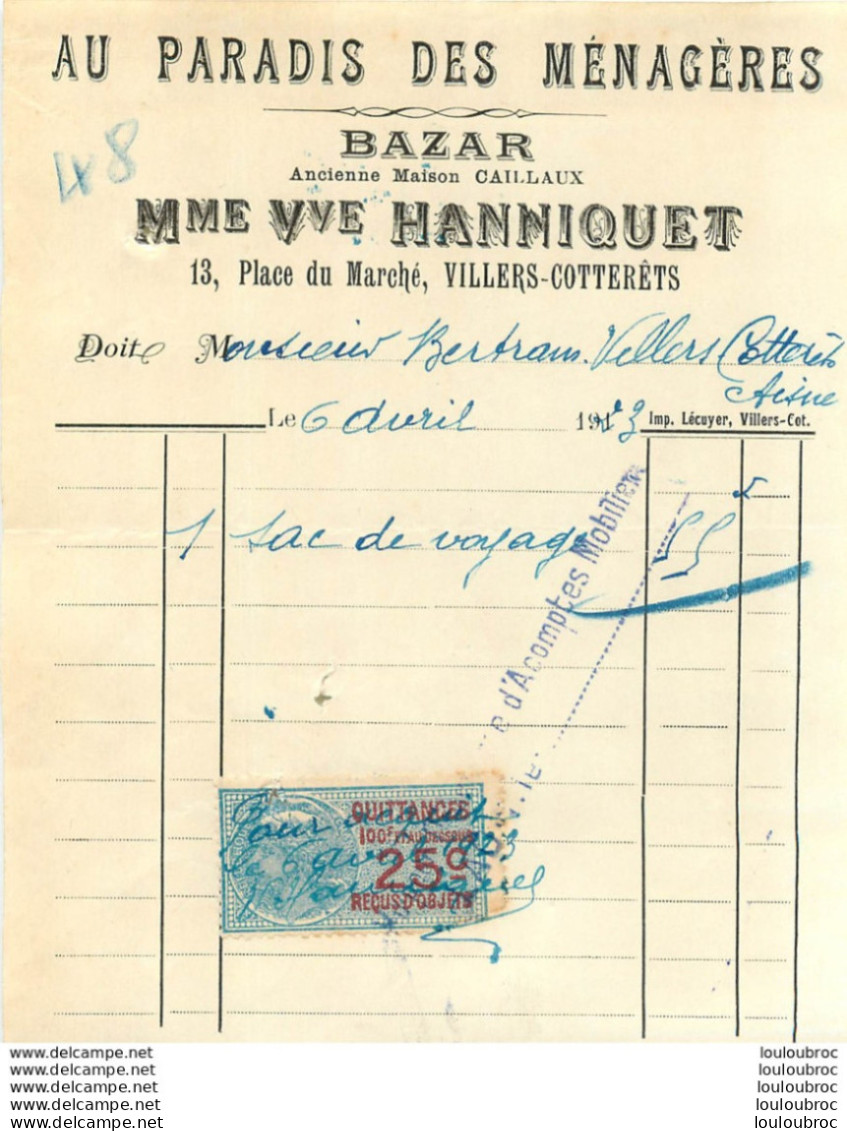 AU PARADIS DES MÉNAGÈRES
BAZAR
Ancienne Maison CAILLAUX
MME VVE HANNIQUET
13, Place du Marché, VILLERS-COTTERÊTS
Doit Monsieur Bertrand Villers Cotterêts
Aisne
Le 6 avril 1923 Imp. Lécuyer, Villers-Cot.
1 sac de voyage 55
d'Acomptes Mobiliers
QUITTANCES
100F ET AU DESSOUS
25C
REÇUS D'OBJETS
Pour acquit
Le 6 avril 1923
www.delcampe.net louloubroc
www.delcampe.net louloubroc
www.delcampe.net louloubroc
www.delcampe.net louloubroc
www.delcampe.net louloubroc